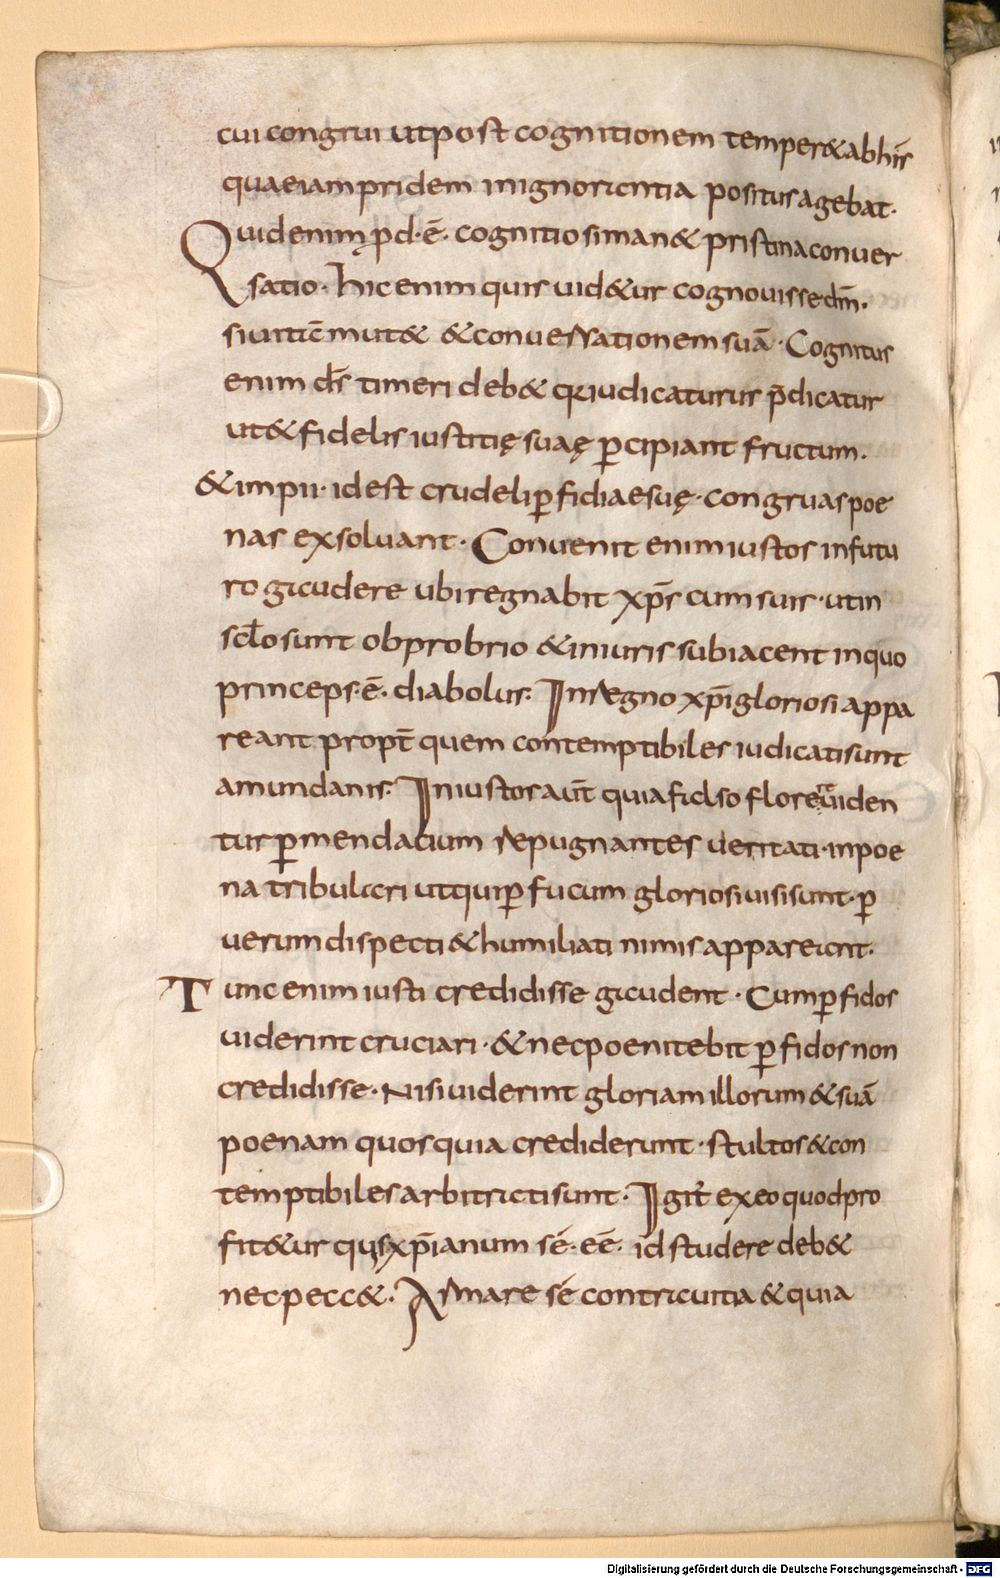 cui congrui ut post cognitionem temper& ab hiſ
quae iampridem inignorantia positus agebat.
Quid enim ꝓd·ē· cognitio si man& pristina conuer
satio· hic enim quis uid&ur cognouisse dm̄.
si uitiē mut& & conuersationem suā· Cognitus
enim dſ̄ timeri deb& q̄ iudicaturus p̄dicatur
ut & fidelis iustitię suaę ꝑcipiant fructum.
& impii· id est crudeli ꝑfidiae suę· congruas poe
nas exsoluant· Conuenit enim iustos in futu
ro gaudere ubi regnabit xp̄s cum suis· ut in
scl̄o sunt obprobrio & iniuris subiacent in quo
princeps·ē· diabolus· In regno xp̄i gloriosi appa
reant propt̄ quem contemptibiles iudicati sunt
a mundanis· Iniustos aut̄ quia falso flore re uiden
tur ꝑ mendacium repugnantes ueritati· in poe
na tribulari ut qui ꝑ fucum gloriosi uisi sunt· ꝑ
uerum dispecti & humiliati nimis appareant.
Tunc enim iusti credidisse gaudent· Cum ꝑfidos
uiderint cruciari· & nec poenitebit ꝑfidos non
credidisse· Nisi uiderint gloriam illorum & suā
poenam quos quia crediderunt· stultos & con
temptibiles arbitrati sunt· Igit̄ ex eo quod pro
fit&ur quis xp̄ianum sé· eē· id studere deb&
nec pecc&· Amare sé contra uitia & quia
Digitalisierung gefördert durch die Deutsche Forschungsgemeinschaft - DFG